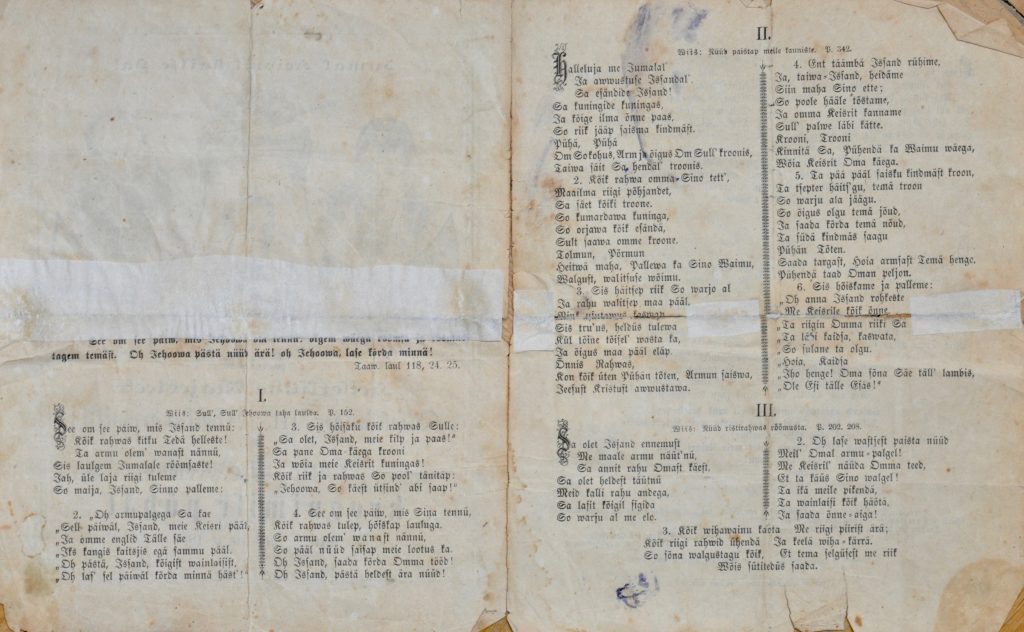 See om see päiw, mis Jehoowa om tennü: olgem wäega rõõmsa ja
tagem temäst. Oh Jehoowa pästä nüüd ärä! oh Jehoowa, lase kõrda minnä!
Taaw. laul 118, 24. 25.
I.
Wiis: Sull', Sull' Jehoowa taha laulda. P. 152.
See om see päiw, mis Issand tennü:
Kõik rahwas kitku Tedä helleste!
Ta armu olem' wanast nännü,
Sis laulgem Jumalale rõõmsaste!
Jah, üle laja riigi tuleme
So maija, Issand, Sinno palleme:
2. „Oh armupalgega Sa kae
„Sell päiwäl, Issand, meie Keisri pääl,
„Ja omme englid Tälle säe
„Iks kangis kaitsjis egä sammu pääl.
„Oh pästä, Issand, kõigist wainlaisist,
„Oh las' sel päiwäl kõrda minnä häst'!"
3. Sis hõisaku kõik rahwas Sulle:
„Sa olet, Issand, meie kilp ja paas!"
Sa pane Oma käega krooni
Ja wõia meie Keisrit kuningas!
Kõik riik ja rahwas So pool' tänitap:
„Jehoowa, So käest ütsind' abi saap!"
4. See om see päiw, mis Sina tennü,
Kõik rahwas tulep, hõiskap lauluga.
So armu olem' wanast nännü,
So pääl nüüd saisap meie lootus ka.
Oh Issand, saada kõrda Omma tööd!
Oh Issand, pästä heldest ära nüüd!
II.
Wiis: Nüüd paistap meile kauniste. P. 342.
Halleluja me Jumalal'
Ja awwustuse Issandal'
Sa esändide Issand!
Sa kuningide kuningas,
Ja kõige ilma õnne paas,
So riik jääp saisma kindmäst.
Pühä, Pühä
Om So kohus, Arm ja õigus Om Sull' kroonis,
Taiwa säit Sa hendal' troonis.
2. Kõik rahwa omma Sino tett',
Maailma riigi põhjandet,
Sa säet kõiki troone.
So kumardawa kuninga,
So orjawa kõik esändä,
Sult saawa omme kroone.
Tolmun, Põrmun
Heitwä maha, Pallewa ka Sino Waimu,
Walgust, walitsuse wõimu.
3. Sis häitsep riik So warjo al
Ja rahu walitsep maa pääl,
Sis tru'us, heldüs tulewa
Kül lõine tõisel' wasta ka,
Ja õigus maa pääl eläp.
Õnnis Rahwas,
Kon kõik üten Pühän tõten, Armun saiswa,
Jeesust Kristust awwustawa.
4. Ent täämbä Issand rühime,
Ja, taiwa-Issand, heidäme
Siin maha Sino ette;
So poole hääle tõstame,
Ja omma Keisrit kanname
Sull' palwe läbi kätte.
Krooni, Trooni
Kinnitä Sa, Pühendä ka Waimu wäega,
Wõia Keisrit Oma käega.
5. Ta pää pääl saisku kindmäst kroon,
Ta tsepter häits'gu, temä troon
So warju ala jäägu.
So õigus olgu temä jõud,
Ja saada kõrda temä nõud,
Ta südä kindmäs saagu
Pühän Tõten.
Saada targast, Hoia armsast Temä henge.
Pühendä taad Oman peljon.
6. Sis hõiskame ja palleme:
„Oh anna Issand rohkeste
„Me Keisrile kõik õnne,
„Ta riigin Omma riiki Sa
„Ta läbi kaidsa, kaswata,
„So sulane ta olgu.
„Hoia, Kaidsa
„Iho henge! Oma sõna Säe täll' lambis,
„Ole Esi tälle Esäs!"
III.
Wiis: Nüüd ristirahwas rõõmusta. P. 202, 208.
Sa olet Issand ennemust
Me maale armu näüt'nü,
Sa annit rahu Omast käest,
Sa olet heldest täütnü
Meid kalli rahu andega,
Sa lasit kõigil sigida
So warju al me elo.
2. Oh lase wastsest paista nüüd
Meil' Omal armu-palgel!
Me Keisril' näüda Omma teed,
Et ta käüs Sino walgel!
Ta ikä meile pikendä,
Ta wainlaisi kõik häöta,
Ja saada õnne-aiga!
3. Kõik wihawainu kaota Me riigi piirist ärä;
Kõik riigi rahwid ühendä Ja keelä wiha-kärrä.
So sõna walgustagu kõik, Et tema selgüsest me riik
Wõis sütitedüs saada.